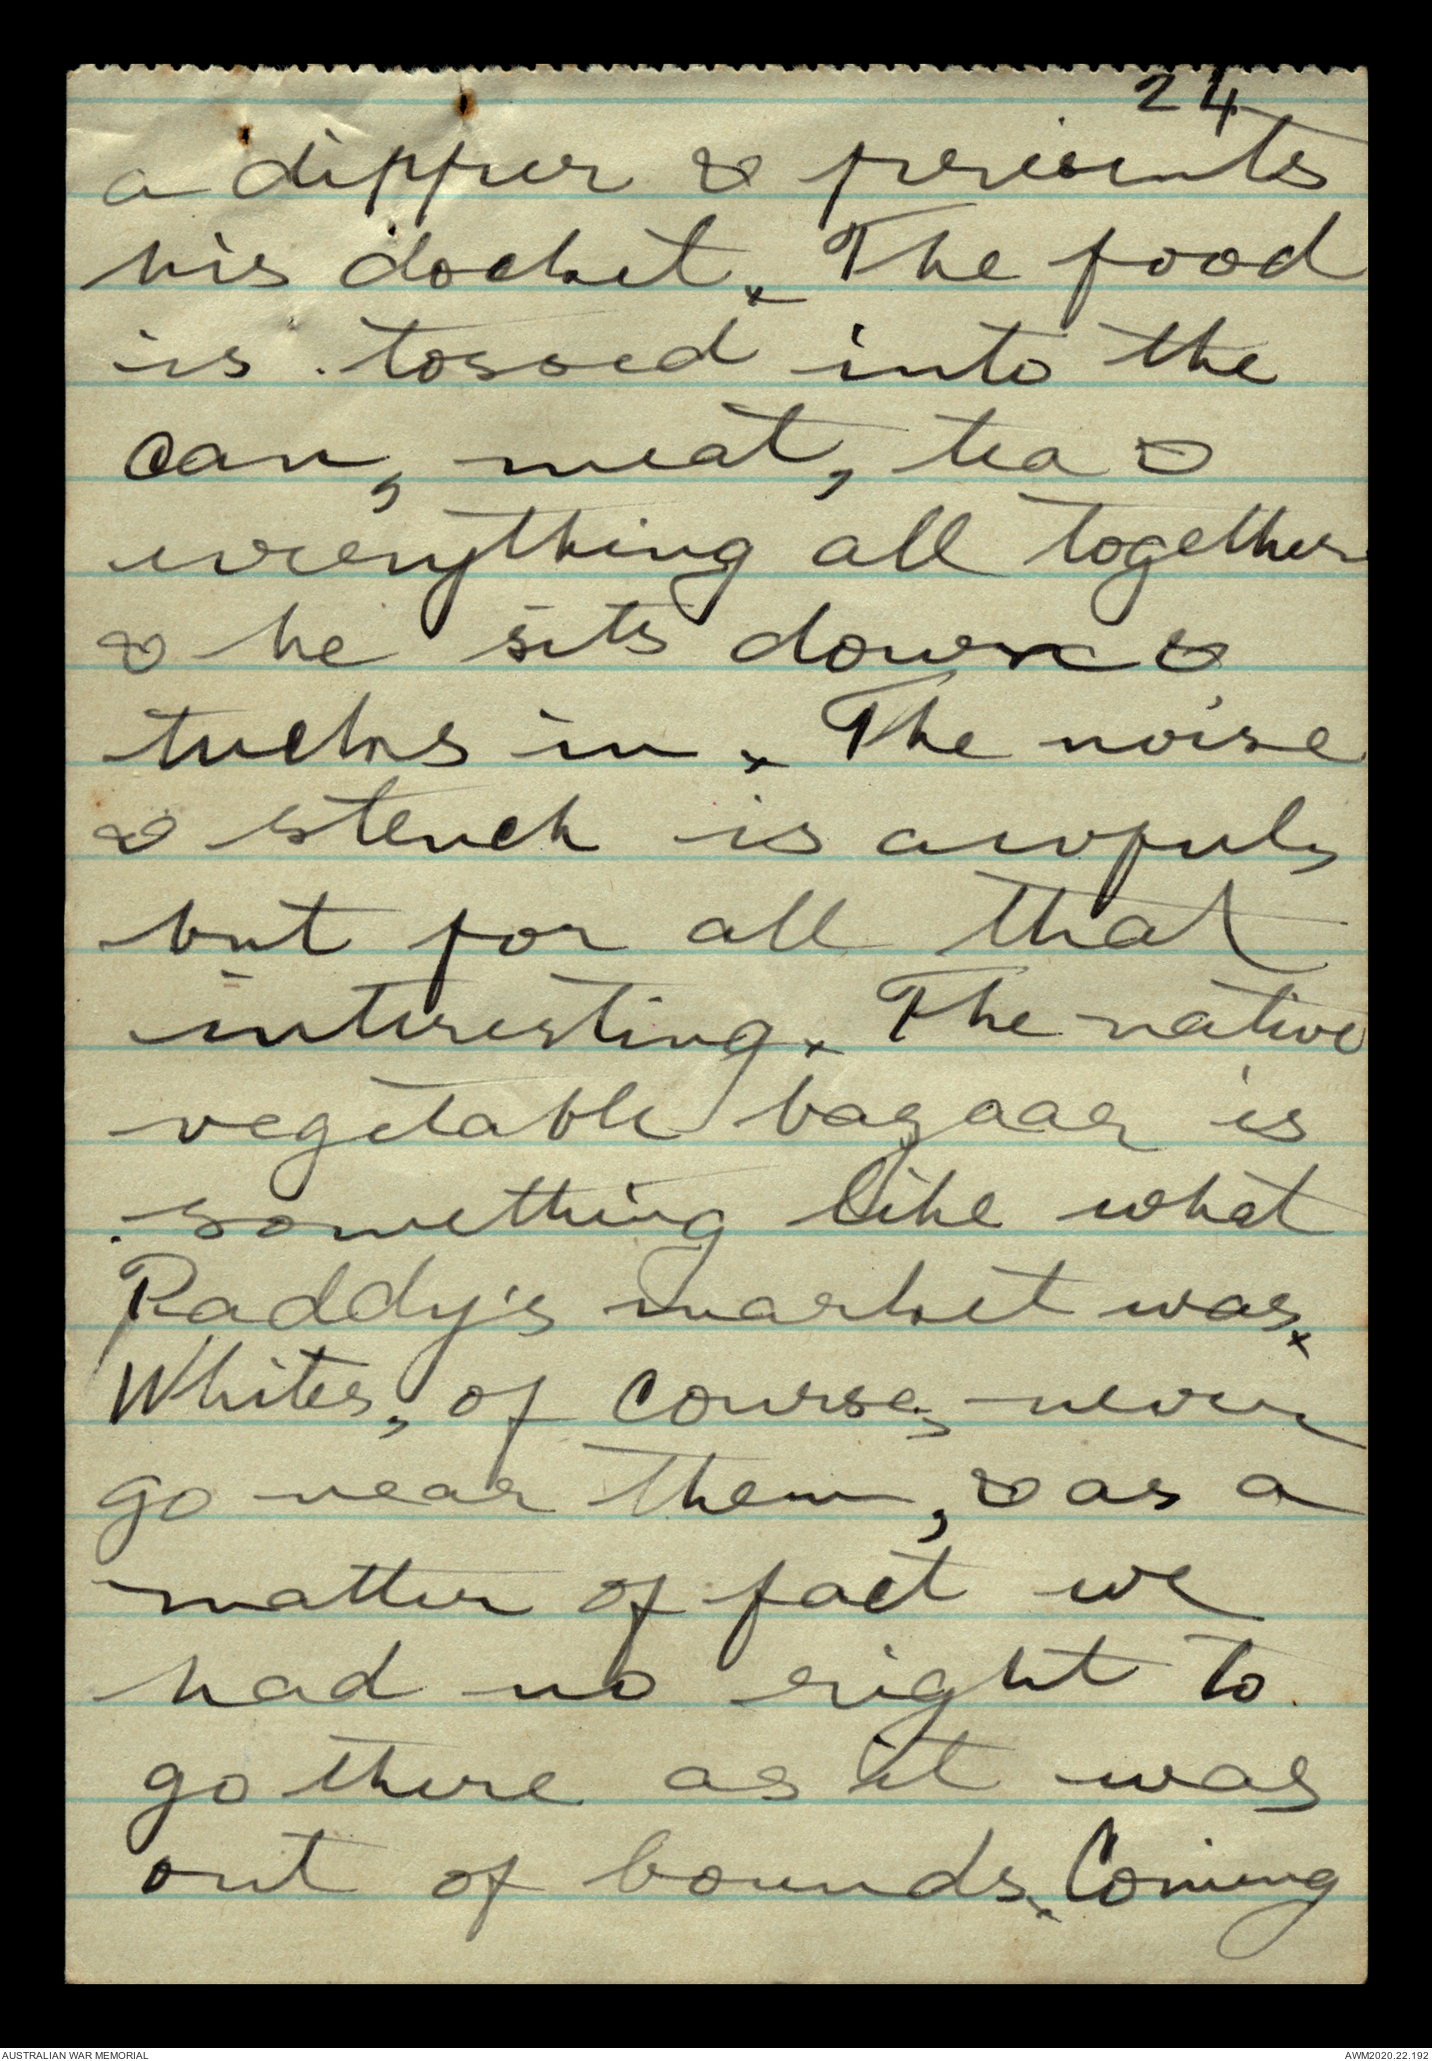 24
a dipper & presents
his docket. The food
is tossed into the
can, meat, tea &
everything all together
& he sits down &
tucks in. The noise
& stench is awful,
but for all that
interesting. The native
vegetable bazaar is
something like what
Paddy's market was.
Whites, of course, never
go near them, & as a
matter of fact we
had no right to
go there as it was
out of bounds. Coming
AUSTRALIAN WAR MEMORIAL
AWM2020.22.192